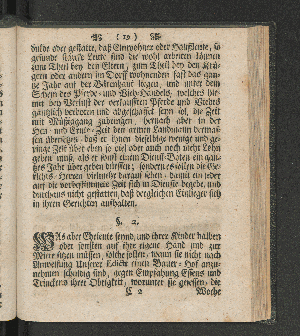 ( 19 )
dulde oder gestatte, daß Einwohner oder Haußleute, so
gesunde starcke Leute sind die wohl arbeiten können
zum Theil bey den Eltern, zum Theil bey den Krü-
gern oder andern im Dorff wohnenden fast das gan-
tze Jahr auf der Bärenhaut liegen, und unter dem
Schein des Pferde- und Vieh-Handels, welches hie-
mit bey Verlust der verkaufften Pferde und Viehes
gäntzlich verboten und abgeschaffet seyn sol, die Zeit
mit Müßiggang zubringen, hernach aber in der
Heu- und Ernte-Zeit den armen Landmann dermas-
sen übersetzen, daß er ihnen dieselbige wenige und ge-
ringe Zeit über eben so viel oder auch noch mehr Lohn
geben muß, als er sonst einem Dienst-Boten ein gan-
tzes Jahr über geben dürffte; sondern es sollen die Ge-
richts-Herren vielmehr darauf sehen, damit ein jeder
auf die vorbestimmte Zeit sich in Dienste begebe, und
durchaus nicht gestatten, daß dergleichen Einlieger sich
in ihren Gerichten aufhalten.
§. 2.
Was aber Eheleute seynd, und ihrer Kinder halber
oder sonsten auf ihre eigene Hand und zur
Miete sitzen müssen, solche sollen, wann sie nicht nach
Anweisung Unserer Edicte einen Bauer-Hof anzu-
nehmen schuldig sind, gegen Empfahung Essens und
Trinckens ihrer Obrigkeit, worunter sie gesessen, die
C 2 Woche